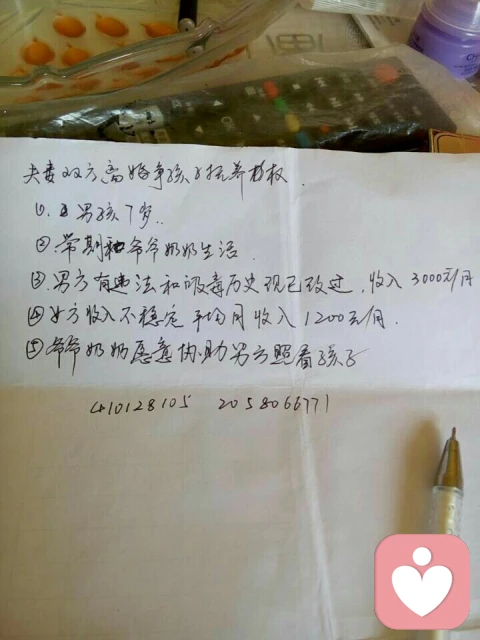 夫妻双方离婚争孩子抚养权.
①. 男孩7岁..
②.常期和爷爷奶奶生活.
③.男方有违法和吸毒历史现已改过.收入3000元/月
④女方收入不稳定平均月收入1200元/月.
⑤爷爷奶奶愿意协助男方照看孩子
410128105 2058066771